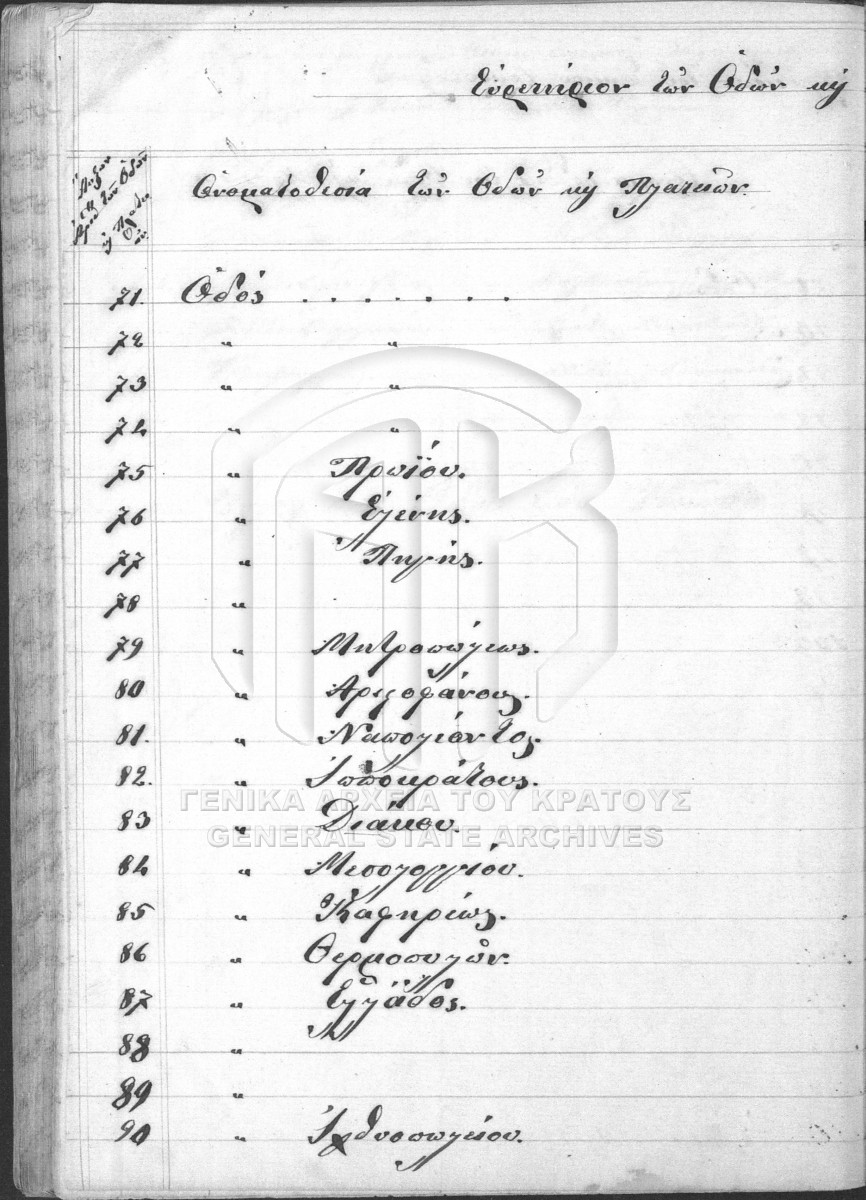 Εὑρετήριον τῶν Ὁδῶν κỳ
Ὀνοματοθεσία τῶν Ὁδῶν κỳ Πλατειῶν.
71. Ὁδός . . . . . . .
72 " "
73 " "
74 " "
75 " Πρωΐου.
76 " Ἑλένης.
77 " Πηγῆς.
78 "
79 " Μητροπόλεως.
80 " Ἀριστοφάνους.
81. " Ναπολέοντος.
82. " Ἱπποκράτους.
83 " Διάκου.
84 " Μεσολογγίου.
85 " Καφηρέως.
86 " Θερμοπυλῶν.
87 " Ἑλλάδος.
88 "
89 "
90 " Ἰχθυοπωλείου.
ΓΕΝΙΚΑ ΑΡΧΕΙΑ ΤΟΥ ΚΡΑΤΟΥΣ
GENERAL STATE ARCHIVES